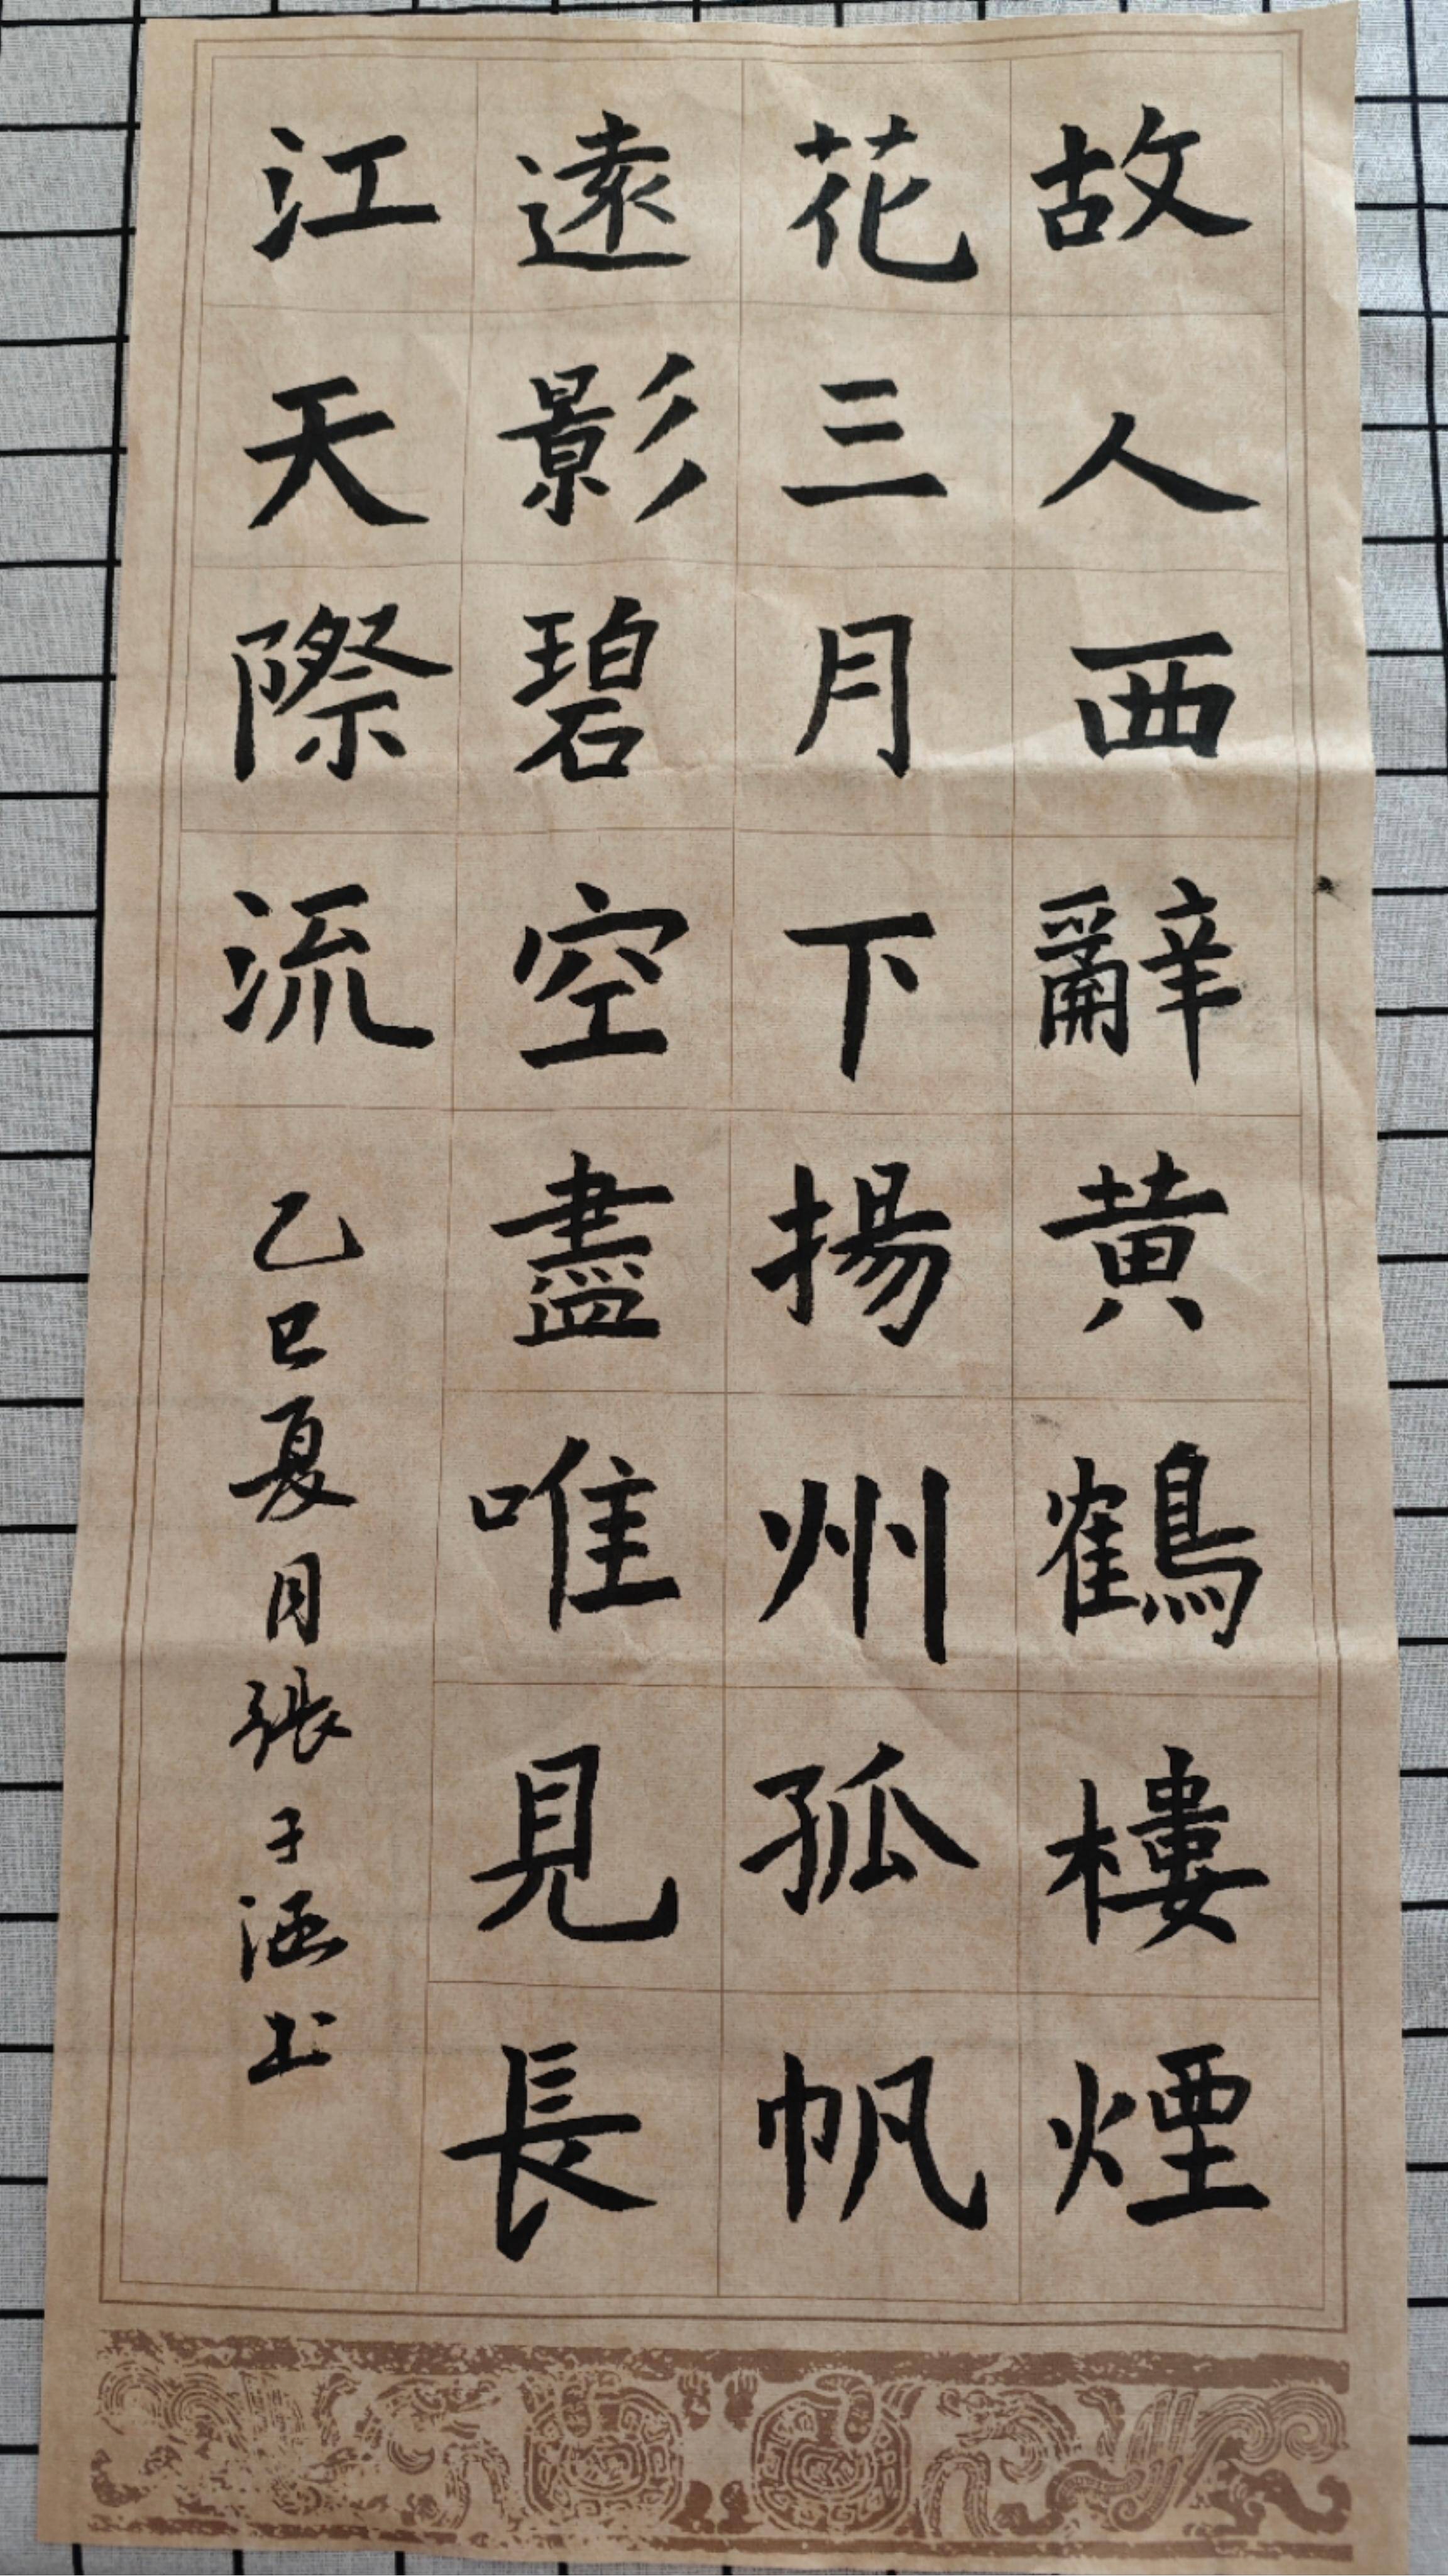 故人西辭黄鶴樓煙
花三月下揚州孤帆
遠影碧空盡唯見長
江天際流
乙巳夏月張子涵书